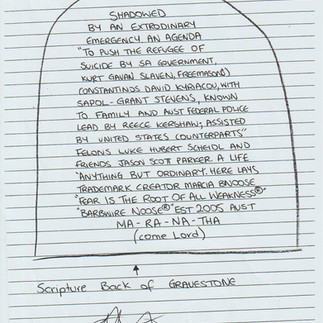 SHADOWED
BY AN EXTRODINARY
EMERGENCY AN AGENDA
"TO PUSH THE REFUGEE OF
SUICIDE BY SA GOVERNMENT,
KURT GAVAN SLAVEN, (FREEMASONS)
CONSTANTINOS DAVID KYRIACOU, WITH
SAPOL - GRANT STEVENS, KNOWN
TO FAMILY AND AUST FEDERAL POLICE
LEAD BY REECE KERSHAW; ASSISTED
BY UNITED STATES COUNTERPARTS"
FELONS LUKE HUBERT SCHEIDL AND
FRIENDS JASON SCOT PARKER A LIFE
"ANYTHING BUT ORDINARY. HERE LAYS
TRADEMARK CREATOR MARCIA BNOOSE
"FEAR IS THE ROOT OF ALL WEAKNESS®"
"BARBWIRE NOOSE®" EST 2005 AUST
MA - RA - NA - THA
(come Lord)
Scripture Back of GRAVESTONE